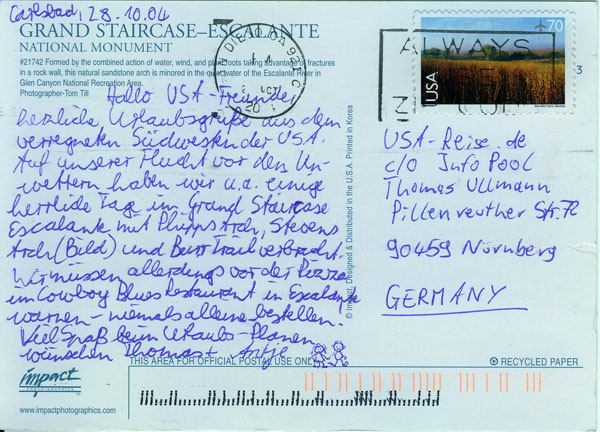 Carlsbad, 28.10.04
GRAND STAIRCASE–ESCALANTE
NATIONAL MONUMENT
#21742 Formed by the combined action of water, wind, and plant roots taking advantage of fractures
in a rock wall, this natural sandstone arch is minored in the quiet water of the Escalante River in
Glen Canyon National Recreation Area.
Photographer-Tom Till
Hallo USA-Freunde,
herzliche Urlaubsgrüße aus dem
verregneten Südwesten der USA.
Auf unserer Flucht vor den Un-
wettern haben wir u.a. einige
herrliche Tage im Grand Staircase
Escalante mit Phipps Arch, Stevens
Arch (Bild) und Burr Trail verbracht.
Wir müssen allerdings vor der Pizza
im Cowboy Blues Restaurant in Escalante
warnen – niemals alleine bestellen.
Viel Spaß beim Urlaubs-Planen
wünschen Thomas + Antje
© Impact, Designed & Distributed in the U.S.A. Printed in Korea
DIEGO CA 921
OCT
ALWAYS
USA
70
3
USA-Reise.de
c/o Info Pool
Thomas Ullmann
Pillenreuther Str. 72
90459 Nürnberg
GERMANY
THIS AREA FOR OFFICIAL POSTAL USE ONLY
RECYCLED PAPER
impact
PHOTOGRAPHICS
www.impactphotographics.com